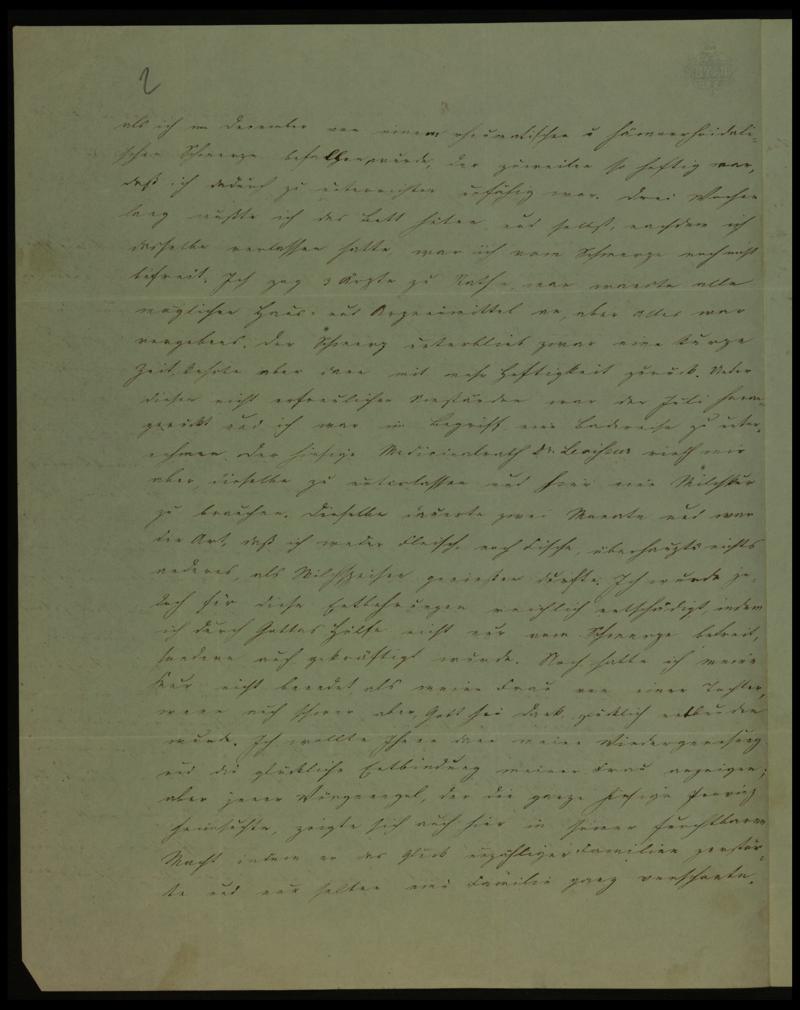 2
als ich im December von einem rheumatischen u hämorrhoidali-
schen Schmerze befallen wurde, der zuweilen so heftig war,
daß ich dadurch zu unterrichten unfähig war. Drei Wochen
lang mußte ich das Bett hüten und selbst, nachdem ich
dasselbe verlassen hatte war ich vom Schmerze noch nicht
befreit. Ich zog 3 Ärzte zu Rathe, man wandte alle
möglichen Haus- und Arzeneimittel an, aber alles war
vergebens. Der Schmerz unterblieb zwar eine kurze
Zeit, kehrte aber dann mit mehr Heftigkeit zurück. Unter
diesen nicht erfreulichen Umständen war der Juli heran-
gerückt und ich war im Begriff eine Badereise zu unter-
nehmen. Der hiesige Medicinalrath Dr. Leviseur rieth mir
aber, dieselbe zu unterlassen und hier eine Milchkur
zu brauchen. Dieselbe dauerte zwei Monate und war
der Art, daß ich weder Fleisch noch Fische, überhaupts nichts
anderes, als Milchspeisen genießen durfte. Ich wurde je-
doch für diese Entbehrungen reichlich entschädigt, indem
ich durch Gottes Hülfe nicht nur vom Schmerze befreit,
sondern auch gekräftigt wurde. Noch hatte ich meine
Kur nicht beendet, als meine Frau von einer Tochter,
wenn auch schwer aber, Gott sei Dank, glücklich entbunden
wurde. Ich wollte Ihnen dann meine Wiedergenesung
und die glückliche Entbindung meiner Frau anzeigen;
aber jener Würgeengel, der die ganze hiesige Provinz
heimsuchte, zeigte sich auch hier in seiner furchtbaren
Macht indem er das Glück unzähliger Familien zerstör-
te und nur selten eine Familie ganz verschonte.